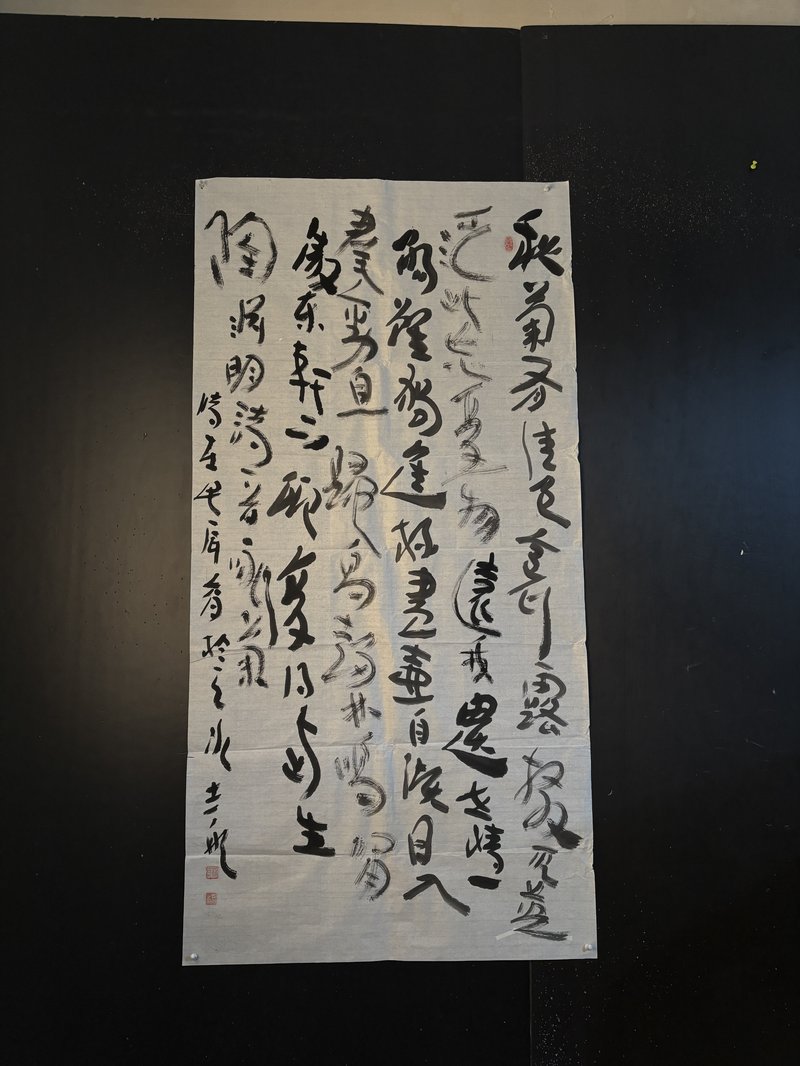 秋菊有佳色裛露掇其英
泛此忘憂物遠我遺世情一
觴雖獨進杯盡壺自傾日入
羣動息歸鳥趨林鳴嘯
傲東軒下聊復得此生
陶淵明詩一首詠菊
於